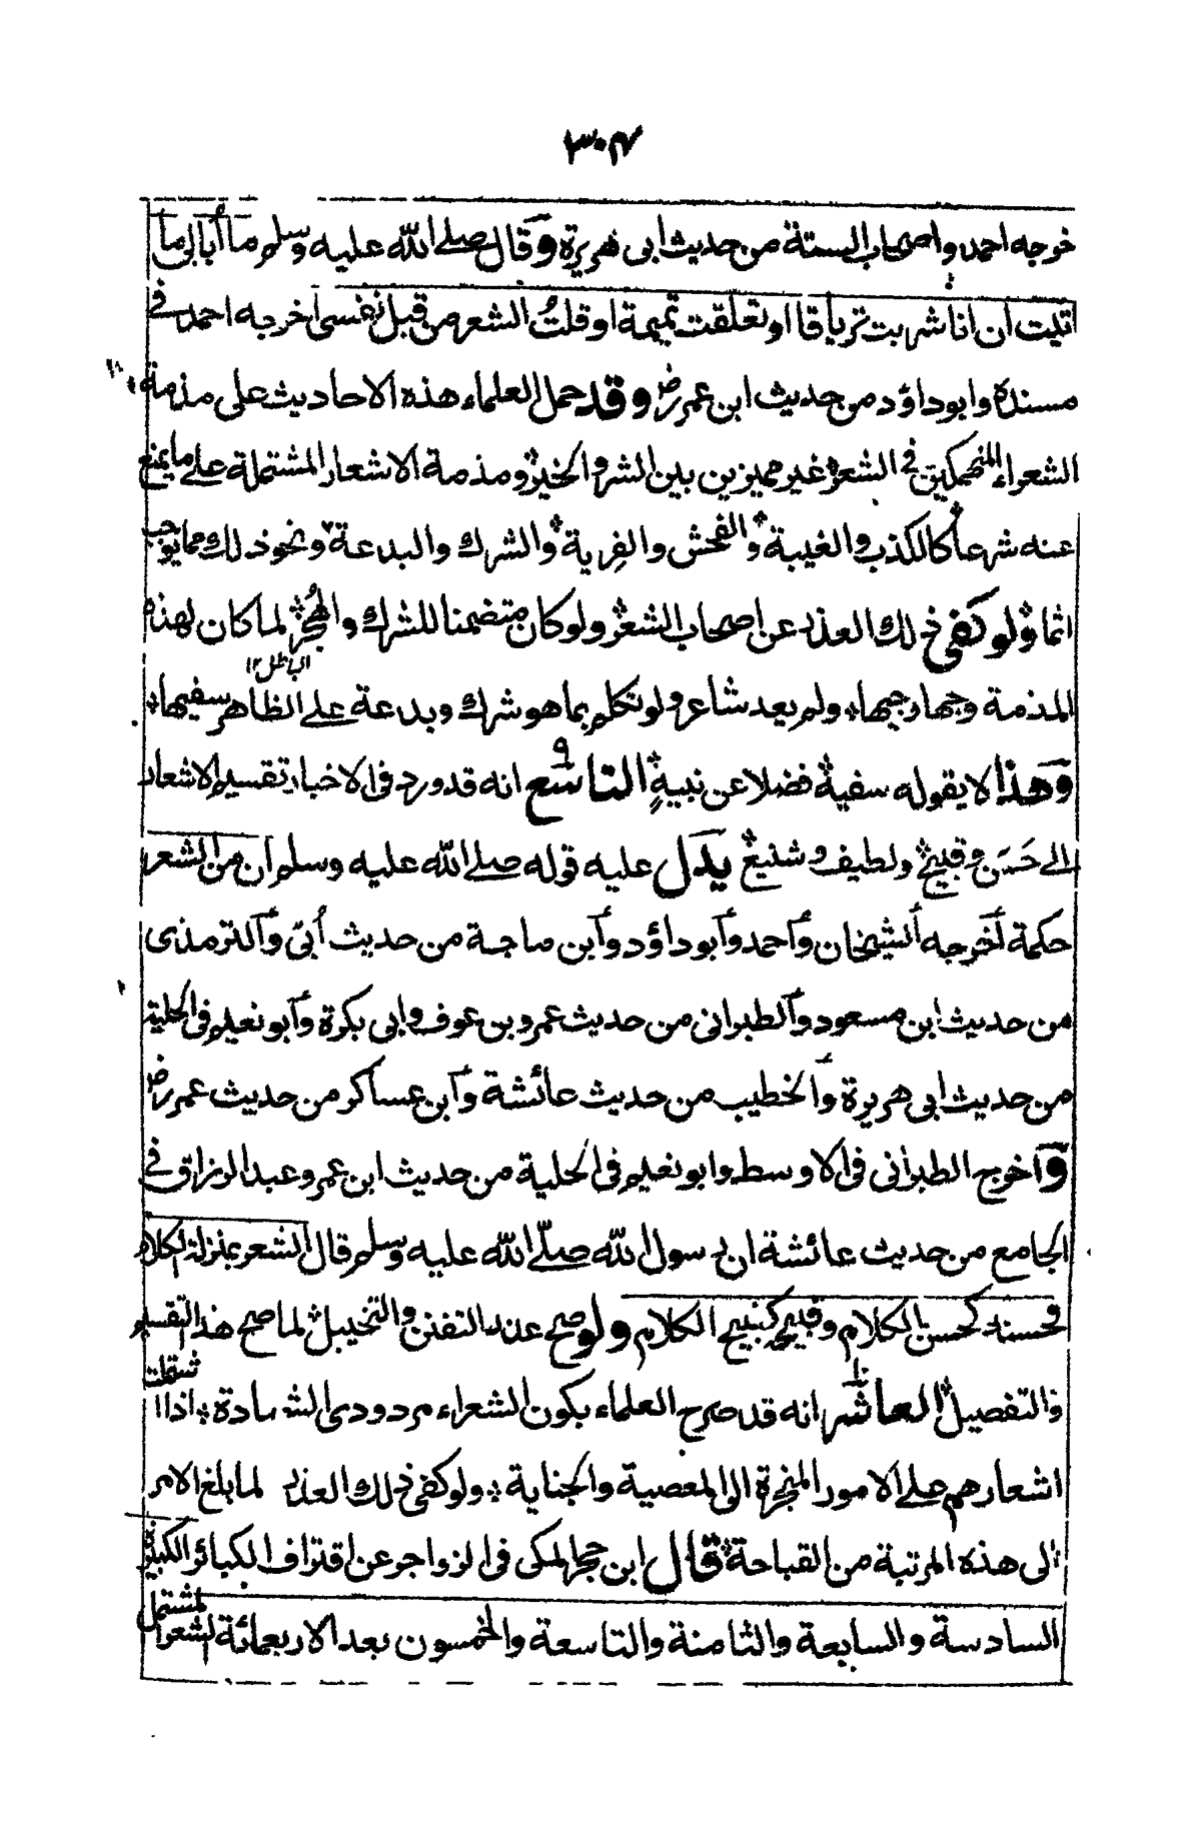 ٣٠٤
خرجه احمد واصحاب الستة من حديث ابى هريرة وقال صلى الله عليه وسلم ما أبالى ما
اتيت ان انا شربت ترياقا او تعلقت تميمة او قلت الشعر من قبل نفسى اخرجه احمد فى
مسنده وابو داؤد من حديث ابن عمر رض وقد حمل العلماء هذه الاحاديث على مذمة
الشعراء المنهمكين فى الشعر غير مميزين بين الشر والخير ومذمة الاشعار المشتملة على ما يمنع
عنه شرعا كالكذب والغيبة والفحش والفِرية والشرك والبدعة ونحو ذلك مما يوجب
اثما ولو كفى ذلك العذر عن اصحاب الشعر ولو كان متضمنا للشرك والهُجر لما كان لهذه
الباطل ١٢
المذمة وجها وجيها ولم يعد شاعر ولو تكلم بما هو شرك وبدعة على الظاهر سفيها
وهذا لا يقوله سفيه فضلا عن نبيهٍ التاسع ٩ انه قد ورد فى الاخبار تقسيم الاشعار
الى حَسَن وقبيح ولطيف وشنيع يدل عليه قوله صلى الله عليه وسلم ان من الشعر
حكمة أخرجه ألشيخان وأحمد وأبو داؤد وأبن ماجة من حديث أُبىّ وألترمذى
من حديث ابن مسعود وألطبرانى من حديث عمرو بن عوف وابى بكرة وأبو نعيم فى الحلية
من حديث ابى هريرة وألخطيب من حديث عائشة وأبن عساكر من حديث عمر رض
واخرج الطبرانى فى الاوسط وابو نعيم فى الحلية من حديث ابن عمر وعبد الرزاق فى
الجامع من حديث عائشة ان رسول الله صلّى الله عليه وسلم قال الشعر بمنزلة الكلام
فحسنه كحسن الكلام وقبيحه كقبيح الكلام ولو صح عذر التفنن والتخييل لما صح هذا التقسيم
والتفصيل العاشر ١٠ انه قد صرح العلماء بكون الشعراء مردودى الشهادة اذا اشتملت
اشعارهم على الامور المنجرة الى المعصية والجناية ولو كفى ذلك العذر لما بلغ الامر
الى هذه المرتبة من القباحة قال ابن حجر المكى فى الزواجر عن اقتراف الكبائر الكبيرة
السادسة والسابعة والثامنة والتاسعة والخمسون بعد الاربعمائة الشعر المشتمل